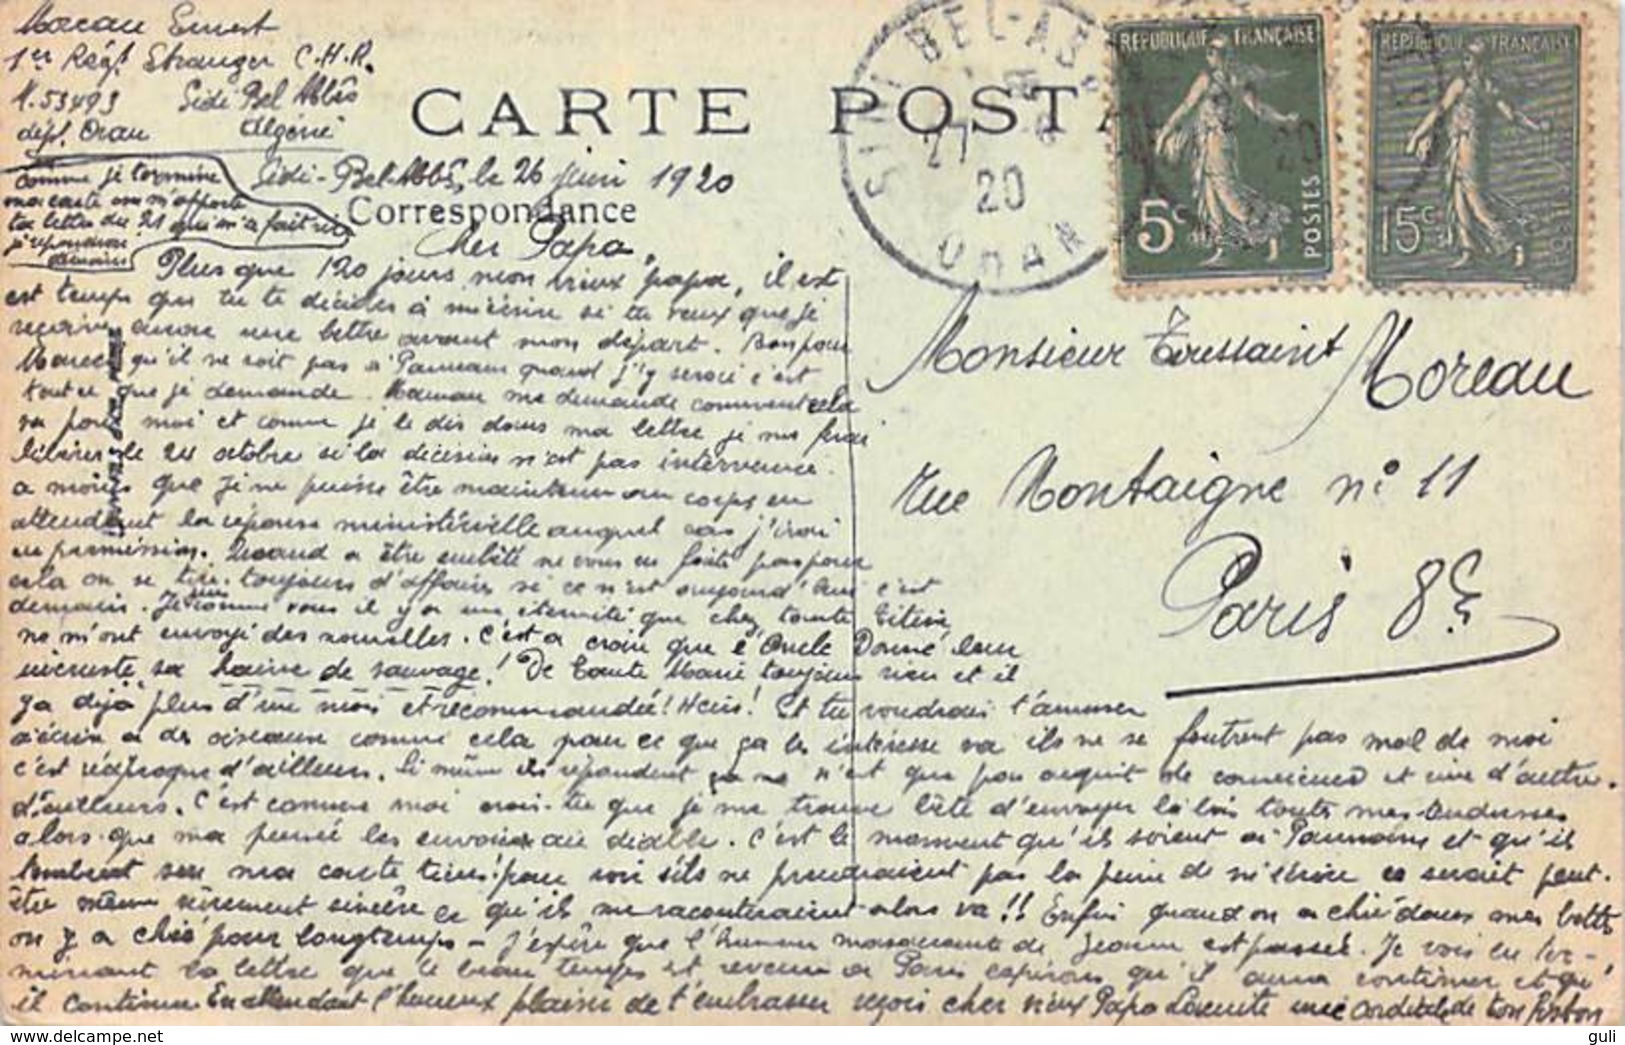 Moreau Ernest
1er Régt Etranger C.H.R.
N. 53493 Sidi Bel Abbès
dépt. Oran Algérie
CARTE POSTA
SIDI BEL-ABB
27
20
ORAN
REPUBLIQUE FRANÇAISE
5c
POSTES
REPUBLIQUE FRANÇAISE
15c
Sidi-Bel-Abbès, le 26 juin 1920
Comme je termine
ma carte on m'apporte
ta lettre du 21 qui m'a fait
je répondrai
demain
Correspondance
Cher Papa,
Plus que 120 jours mon vieux papa, il est
est temps que tu te décides à m'écrire si tu veux que je
reçoive encore une lettre avant mon départ. Bon pour
qu'il ne soit pas à Pauveau quand j'y serai c'est
tout ce que je demande. Maman me demande comment cela
va pour moi et comme je le dis dans ma lettre je me ferai
libérer le 24 octobre si la décision n'est pas intervenue.
a moins que je ne puisse être maintenu au corps en
attendant la réponse ministérielle auquel cas j'irai
en permission. Quand a être embêté ne vous en faite pas pour
cela on se tire toujours d'affaire si ce n'est aujourd'hui c'est
demain. comme vous il y a une éternité que chez tante Titine
ne m'ont envoyé des nouvelles. C'est a croire que l'Oncle Donné leur
incruste sa haine de sauvage! De Tante Marie toujours rien et il
y a déjà plus d'un mois et recommandée! Hein! Et tu voudrais t'amuser
a écrire a des oiseaux comme cela pour ce que ça les intéresse va ils ne se foutent pas mal de moi
c'est réciproque d'ailleurs. Si même ils répondent ça ne n'est que par acquit de conscience et rien d'autre.
d'ailleurs. C'est comme moi crois-tu que je me trouve bête d'envoyer là bas toutes mes
alors que ma pensée les envoie au diable. C'est le moment qu'ils soient a et qu'il
tombent sur ma carte tiens! pour voir s'ils ne prendraient pas la peine de m'écrire ce serait peut-
être même sincère ce qu'il me raconteraient alors va!! Enfin quand on a chié dans mes bottes
on y a chié pour longtemps – J'espère que l'humeur massacrante de Jeanne est passée. Je vois en ter-
minant ta lettre que le beau temps est revenu a Paris espérons qu'il aura continuer et qu'
il continue En attendant l'heureux plaisir de t'embrasser reçois cher vieux Papa une cordiale de ton
Monsieur Toussaint Moreau
Rue Montaigne n° 11
Paris 8e
guli